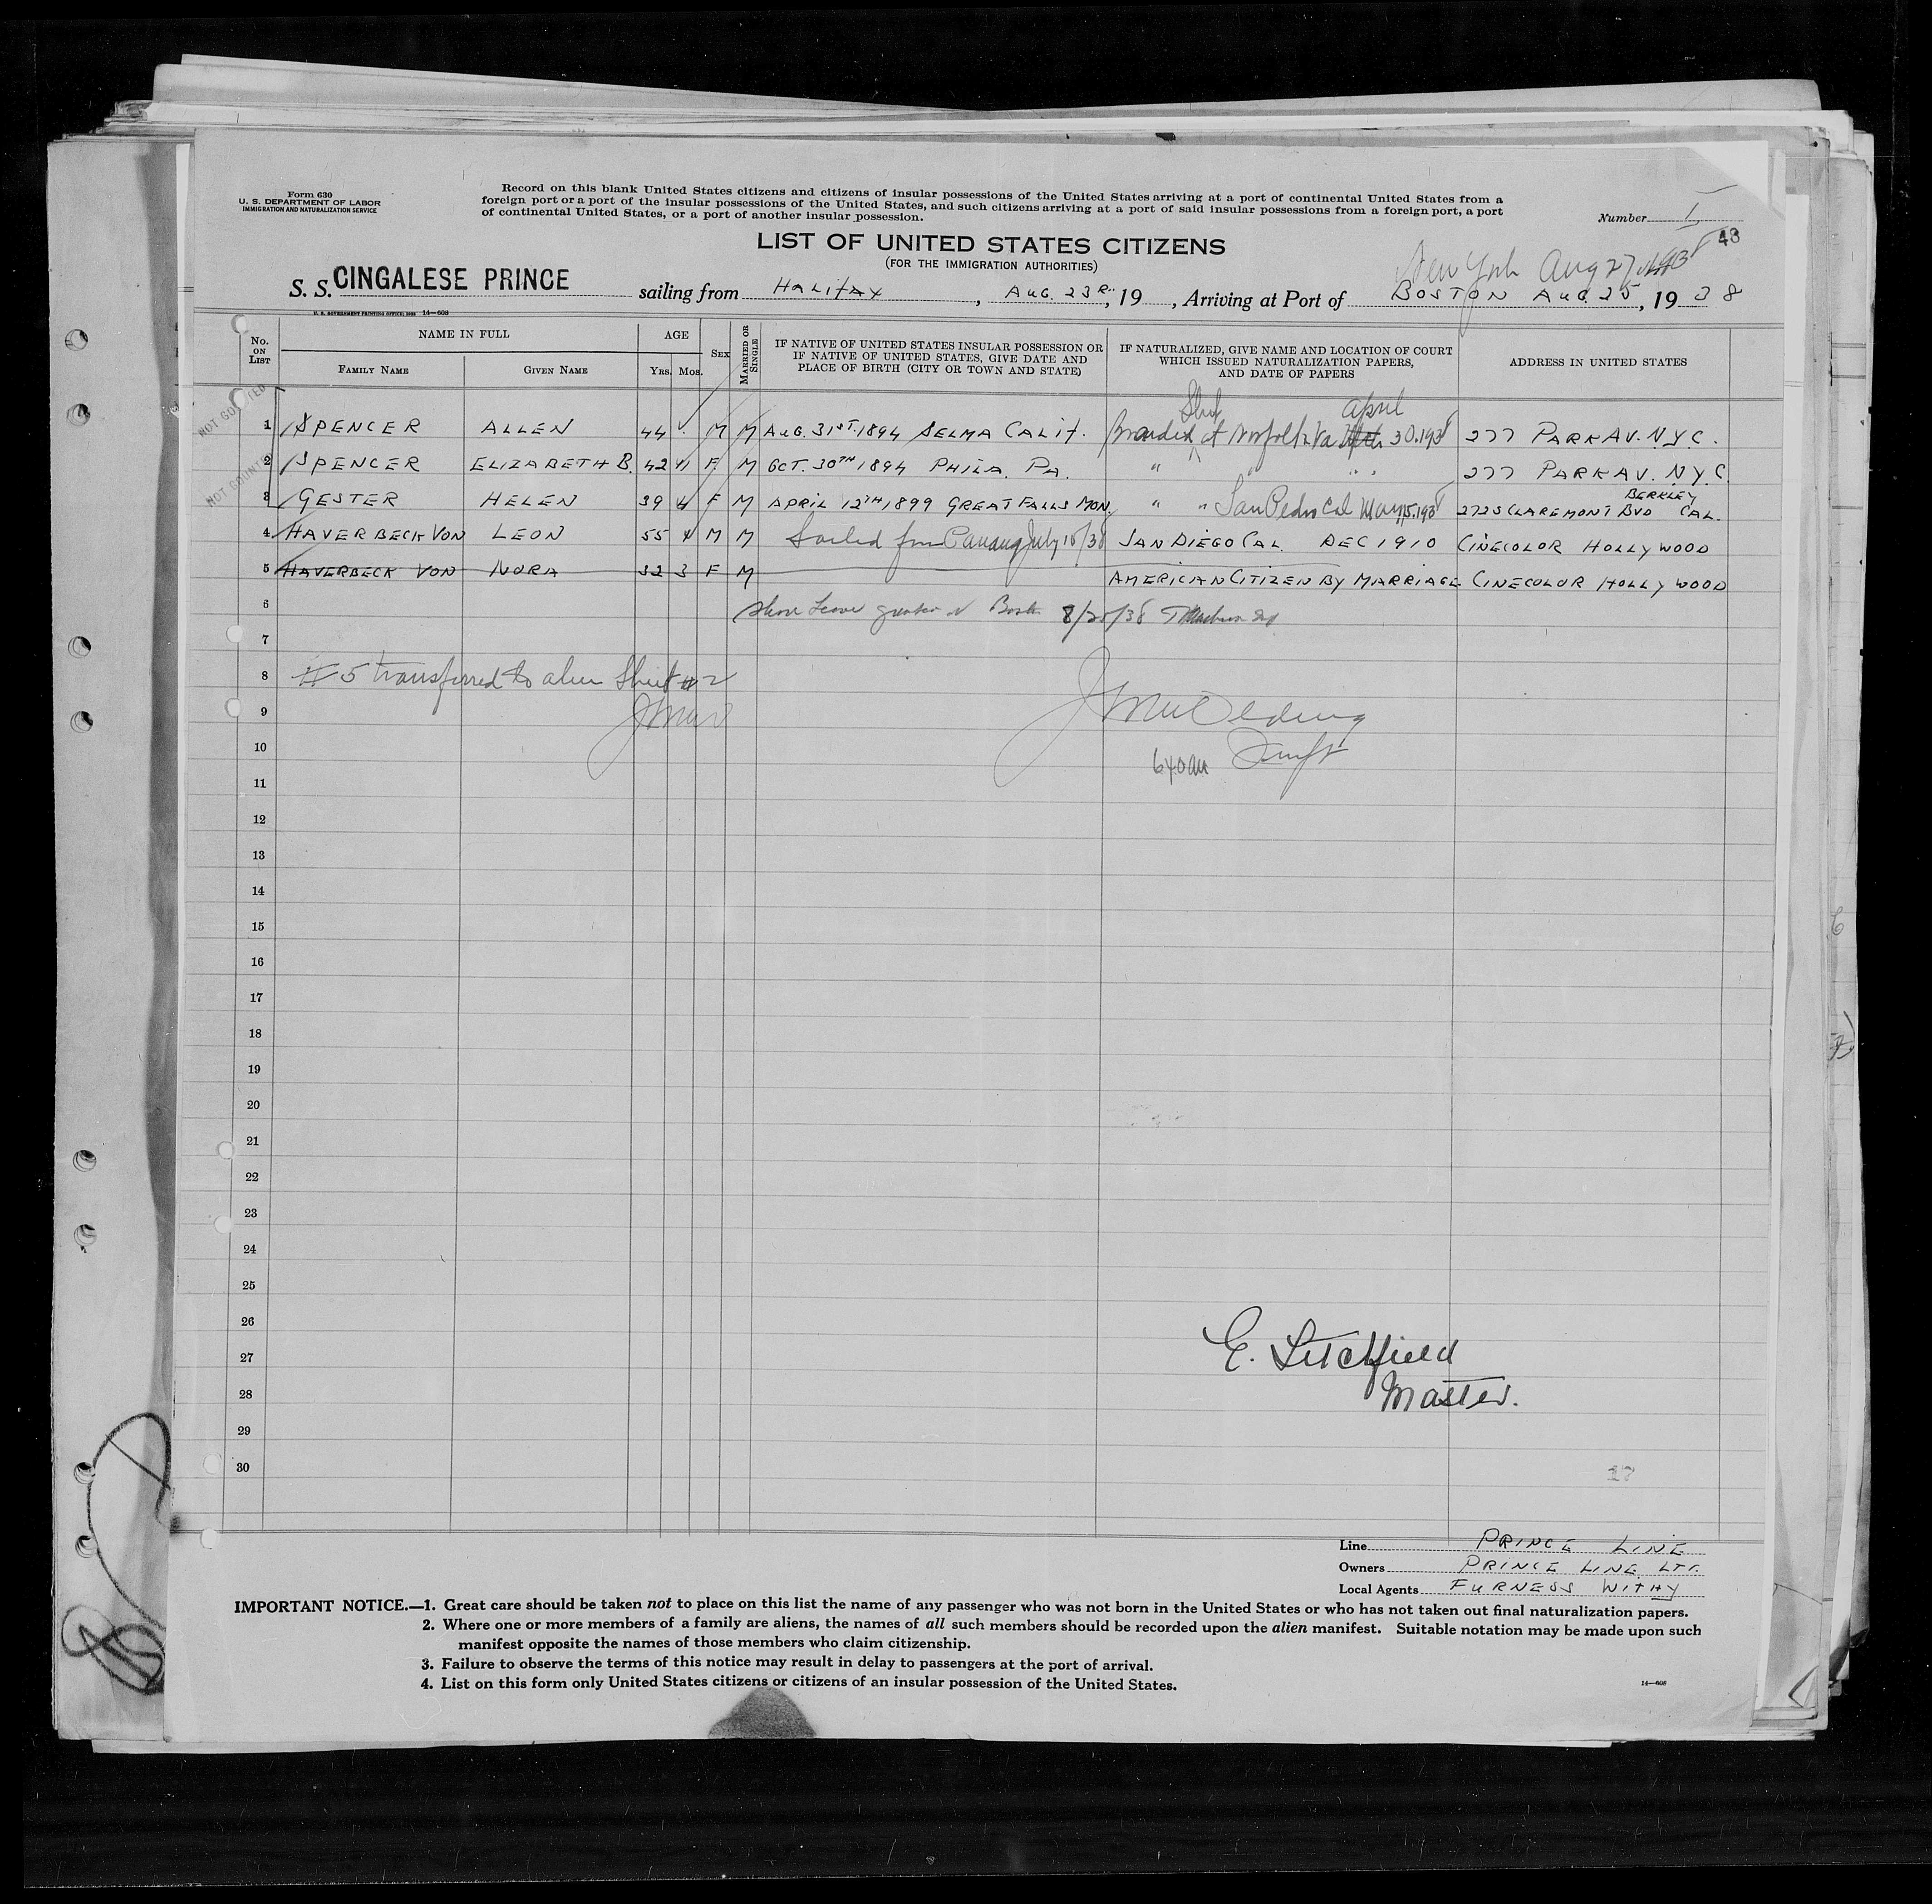 Form 630
U. S. DEPARTMENT OF LABOR
IMMIGRATION AND NATURALIZATION SERVICE
Record on this blank United States citizens and citizens of insular possessions of the United States arriving at a port of continental United States from a
foreign port or a port of the insular possessions of the United States, and such citizens arriving at a port of said insular possessions from a foreign port, a port
of continental United States, or a port of another insular possession.
Number 1
48
LIST OF UNITED STATES CITIZENS
(FOR THE IMMIGRATION AUTHORITIES)
New York Aug 27
S. S. CINGALESE PRINCE sailing from HALIFAX, AUG. 23R., 19 , Arriving at Port of BOSTON AUG. 25, 1938
U. S. GOVERNMENT PRINTING OFFICE: 14—608
No. ON LIST
NAME IN FULL
FAMILY NAME
GIVEN NAME
AGE
YRS. MOS.
SEX
MARRIED OR SINGLE
IF NATIVE OF UNITED STATES INSULAR POSSESSION OR
IF NATIVE OF UNITED STATES, GIVE DATE AND
PLACE OF BIRTH (CITY OR TOWN AND STATE)
IF NATURALIZED, GIVE NAME AND LOCATION OF COURT
WHICH ISSUED NATURALIZATION PAPERS,
AND DATE OF PAPERS
ADDRESS IN UNITED STATES
NOT COUNTED
NOT COUNTED
Ship April
1 SPENCER ALLEN 44 M M AUG. 31ST. 1894 SELMA CALIF. Boarded at Norfolk Va 30.1938 277 PARK AV. N.Y.C.
2 SPENCER ELIZABETH B. 42 F M OCT. 30TH 1894 PHILA. PA. " " " " 277 PARK AV. N.Y.C.
3 GESTER HELEN 39 4 F M APRIL 12TH 1899 GREAT FALLS MON. " " San Pedro Cal May 15.1938 2723 CLAREMONT BVD BERKLEY CAL.
4 HAVERBECK VON LEON 55 4 M M Sailed from July /38 SAN DIEGO CAL. DEC 1910 CINECOLOR HOLLYWOOD
5 HAVERBECK VON NORA 32 3 F M AMERICAN CITIZEN BY MARRIAGE CINECOLOR HOLLYWOOD
6 Shore Leave 8/25/38
7
8 #5 transferred to alien Sheet #2
9
10
640 am
11
12
13
14
15
16
17
18
19
20
21
22
23
24
25
26
27 E. Litchfield
28 Master.
29
30
17
Line PRINCE LINE
Owners PRINCE LINE LTD.
Local Agents FURNESS WITHY
IMPORTANT NOTICE.—1. Great care should be taken not to place on this list the name of any passenger who was not born in the United States or who has not taken out final naturalization papers.
2. Where one or more members of a family are aliens, the names of all such members should be recorded upon the alien manifest. Suitable notation may be made upon such
manifest opposite the names of those members who claim citizenship.
3. Failure to observe the terms of this notice may result in delay to passengers at the port of arrival.
4. List on this form only United States citizens or citizens of an insular possession of the United States.
14—608